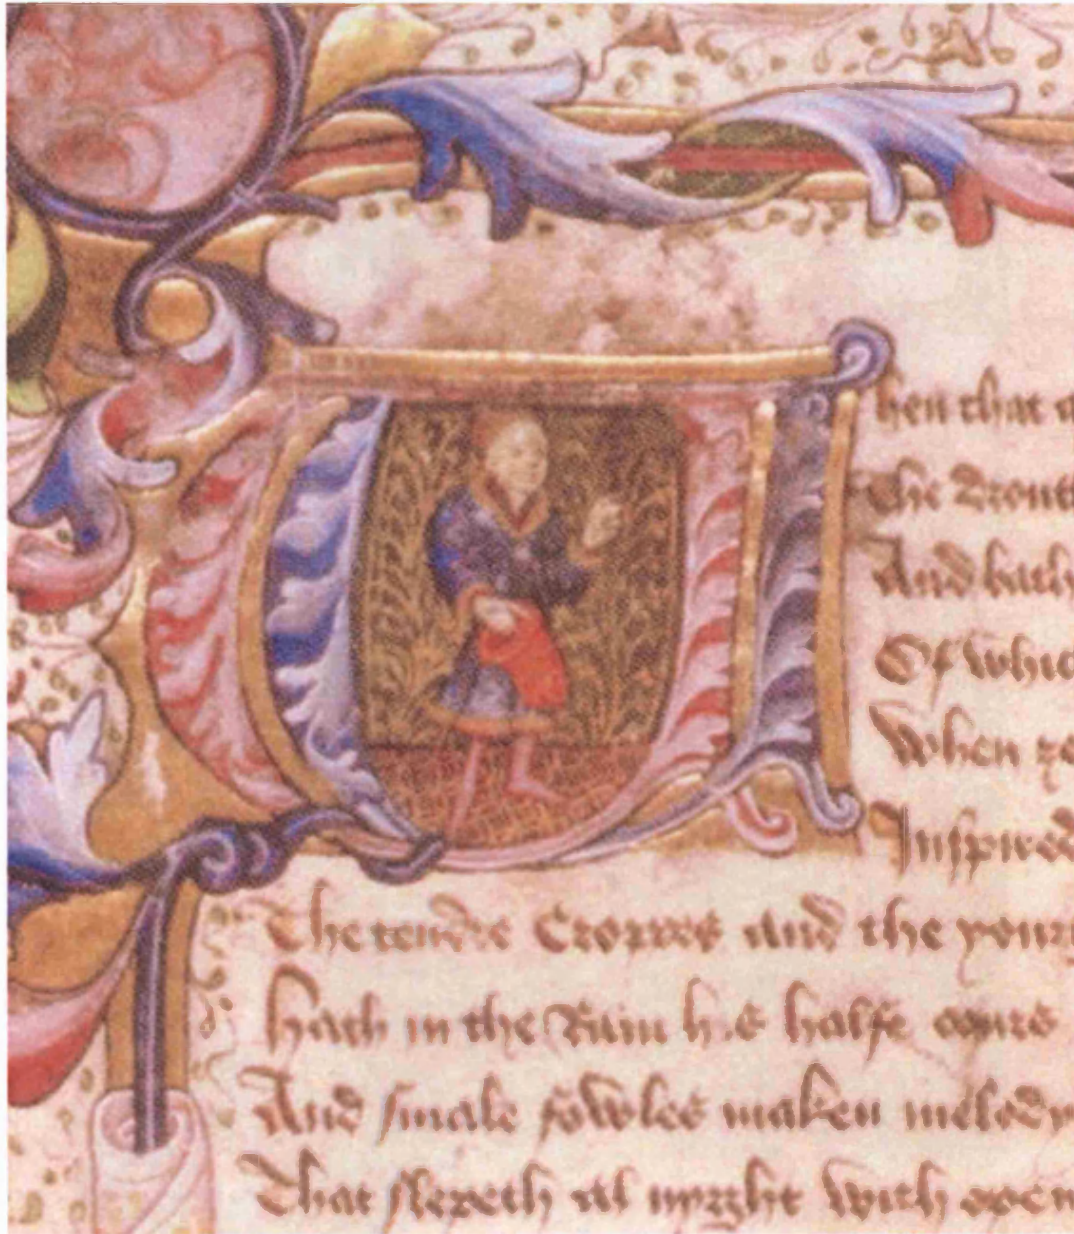 When that
The Drout
And bath
Of whic
When
Inspired
The tendre Croppes and the yong
hath in the Ram his halfe cours
And smale fowles maken melody
That slepeth al nyght with open